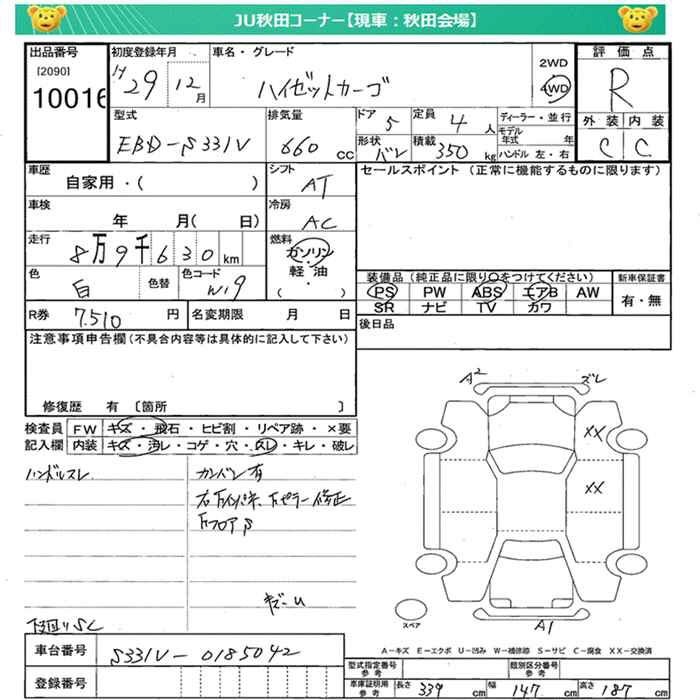 JU秋田コーナー【現車：秋田会場】
出品番号
[2090]
10016
初度登録年月
H29年12月
車名・グレード
ハイゼットカーゴ
2WD
4WD
評価点
R
外装 内装
C C
型式
EBD-S331V
排気量
660 CC
ドア 5
形状 バン
定員 4 人
積載 350 kg
ディーラー・並行
モデル年式 年
ハンドル 左・右
車歴
自家用・( )
シフト
AT
セールスポイント (正常に機能するものに限ります)
車検
年 月( 日)
冷房
AC
走行
8万9千630km
燃料
ガソリン
軽・油
・
( )
色
白
色替
色コード
W19
装備品(純正品に限り○をつけてください)
PS PW ABS エアB AW
SR ナビ TV カワ
新車保証書
有・無
R券 7.510 円
名変期限 月 日
後日品
注意事項申告欄(不具合内容等は具体的に記入して下さい)
修復歴 有 〔箇所 〕
検査員
記入欄
FW キズ・飛石・ヒビ割・リペア跡・×要
内装 キズ・汚レ・コゲ・穴・スレ・キレ・破レ
ハンドルスレ
カンバン有
下回りSC
キズーU
A2
ズレ
XX
XX
A1
スペア
A-キズ E-エクボ U-凹み W-補修跡 S-サビ C-腐食 XX-交換済
車台番号 S331V-0185042
登録番号
型式指定番号
参考
類別区分番号
参考
車庫証明用
参考
長さ 339 cm 幅 147 cm 高さ 187 cm